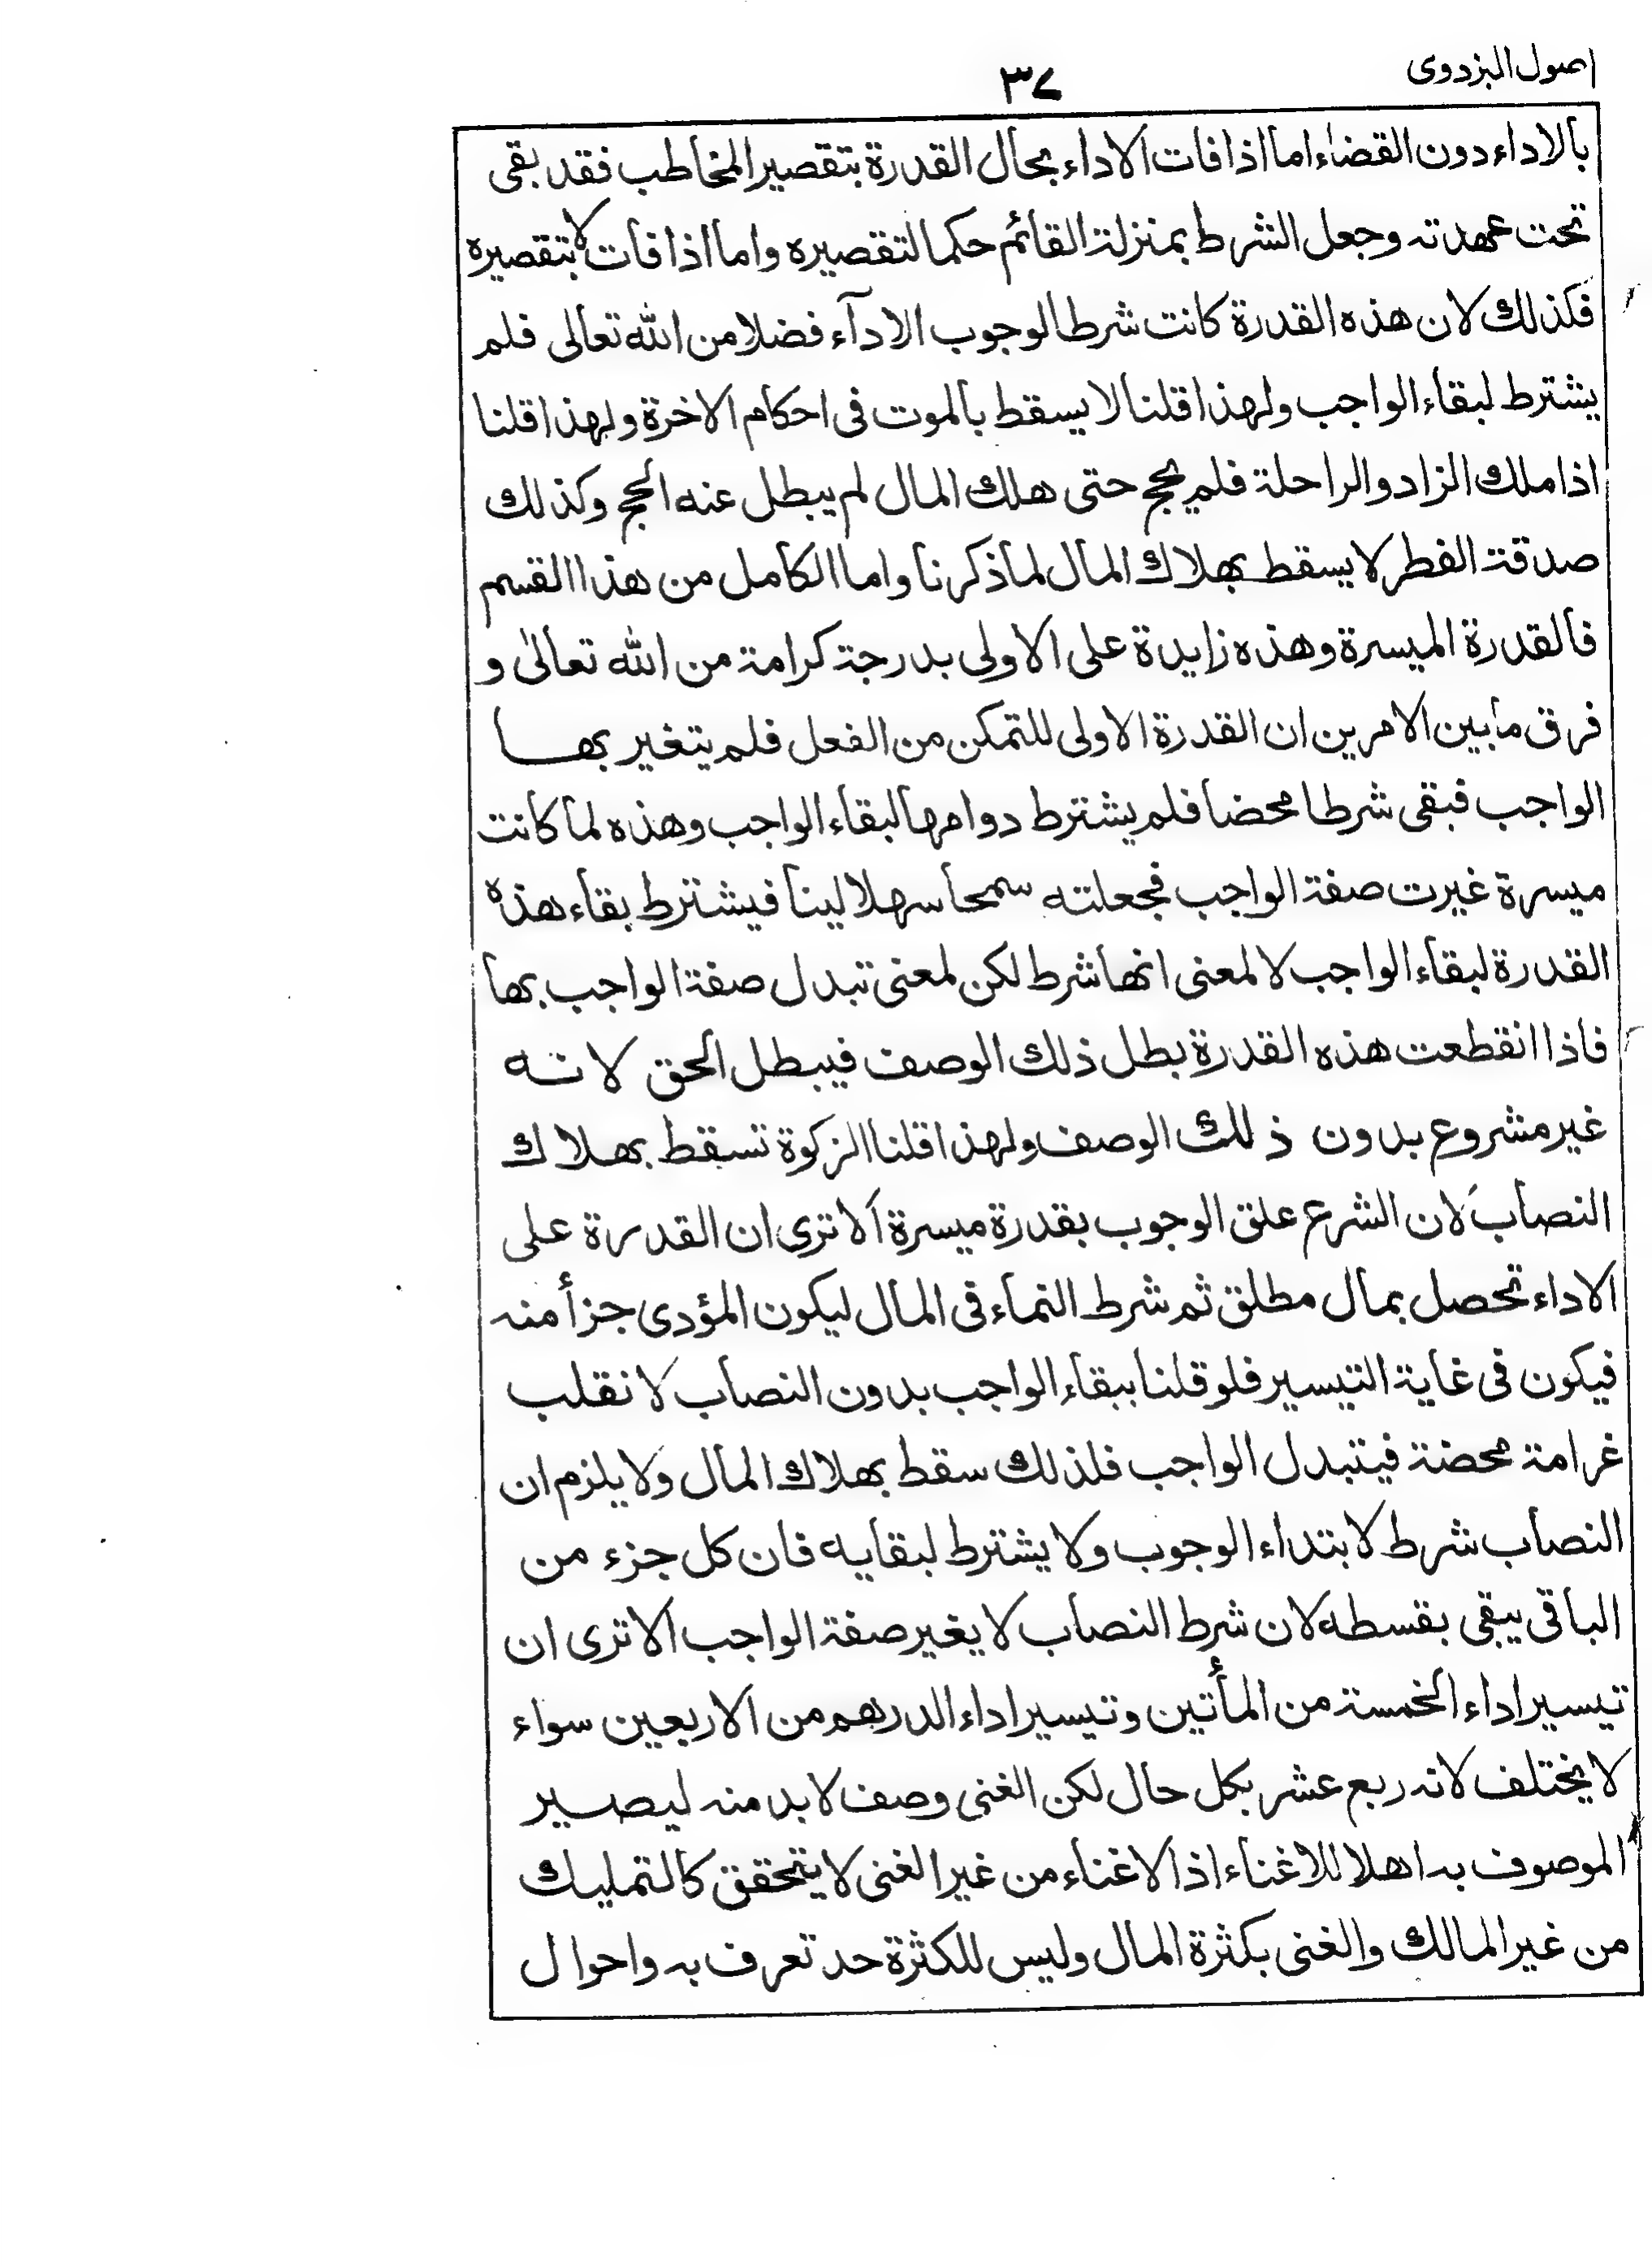 اصول البزدوى
٣٧
بالاداء دون القضاء اما اذا فات الاداء بحال القدرة بتقصير المخاطب فقد بقى
تحت عهدته وجعل الشرط بمنزلة القائم حكما لتقصيره واما اذا فات لا بتقصيره
فكذلك لان هذه القدرة كانت شرطا لوجوب الادآء فضلا من الله تعالى فلم
يشترط لبقاء الواجب ولهذا قلنا لا يسقط بالموت فى احكام الاخرة ولهذا قلنا
اذا ملك الزاد والراحلة فلم يحج حتى هلك المال لم يبطل عنه الحج وكذلك
صدقة الفطر لا يسقط بهلاك المال لما ذكرنا واما الكامل من هذا القسم
فالقدرة الميسرة وهذه زايدة على الاولى بدرجة كرامة من الله تعالىٰ و
فرق ما بين الامرين ان القدرة الاولى للتمكن من الفعل فلم يتغير بها
الواجب فبقى شرطا محضا فلم يشترط دوامها لبقاء الواجب وهذه لما كانت
ميسرة غيرت صفة الواجب فجعلته سمحا سهلا لينا فيشترط بقاء هذه
القدرة لبقاء الواجب لا لمعنى انها شرط لكن لمعنى تبدل صفة الواجب بها
فاذا انقطعت هذه القدرة بطل ذلك الوصف فيبطل الحق لانه
غير مشروع بدون ذلك الوصف ولهذا قلنا الزكوة تسقط بهلاك
النصاب لان الشرع علق الوجوب بقدرة ميسرة الا ترى ان القدرة على
الاداء تحصل بمال مطلق ثم شرط النماء فى المال ليكون المؤدى جزأ منه
فيكون فى غاية التيسير فلو قلنا ببقاء الواجب بدون النصاب لانقلب
غرامة محضة فيتبدل الواجب فلذلك سقط بهلاك المال ولا يلزم ان
النصاب شرط لابتداء الوجوب ولا يشترط لبقايه فان كل جزء من
الباقى يبقى بقسطه لان شرط النصاب لا يغير صفة الواجب الا ترى ان
تيسير اداء الخمسة من المأتين وتيسير اداء الدرهم من الاربعين سواء
لا يختلف لانه ربع عشر بكل حال لكن الغنى وصف لا بد منه ليصير
الموصوف به اهلا للاغناء اذ الاغناء من غير الغنى لا يتحقق كالتمليك
من غير المالك والغنى بكثرة المال وليس للكثرة حد تعرف به واحوال